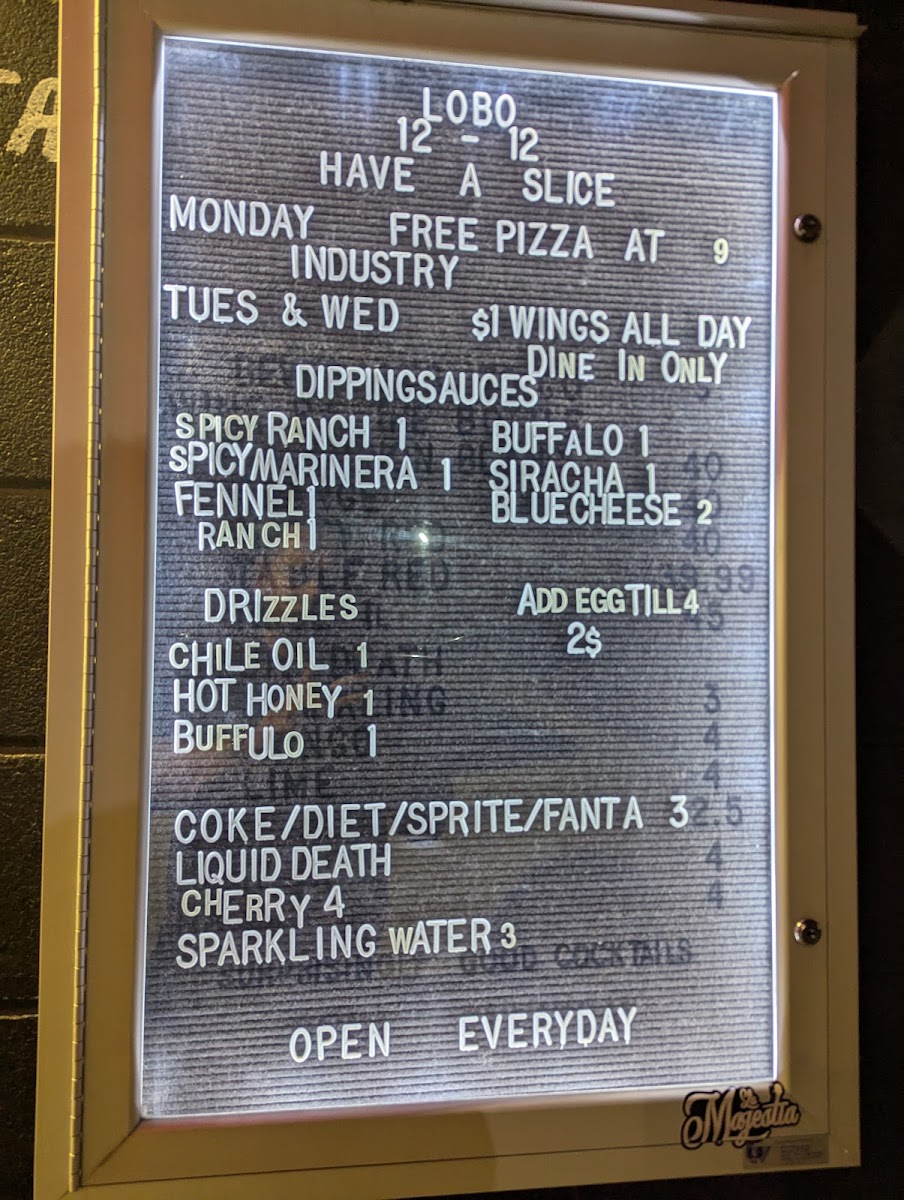 LOBO
12 - 12
HAVE A SLICE
MONDAY FREE PIZZA AT 9
INDUSTRY
TUES & WED $1 WINGS ALL DAY
DINE IN ONLY
DIPPINGSAUCES
SPICY RANCH 1 BUFFALO 1
SPICYMARINERA 1 SIRACHA 1
FENNEL 1 BLUECHEESE 2
RANCH 1
DRIZZLES ADD EGG TILL 4
2$
CHILE OIL 1
HOT HONEY 1
BUFFULO 1
COKE/DIET/SPRITE/FANTA 3
LIQUID DEATH
CHERRY 4
SPARKLING WATER 3
GOOD COCKTAILS
OPEN EVERYDAY
La Majestia